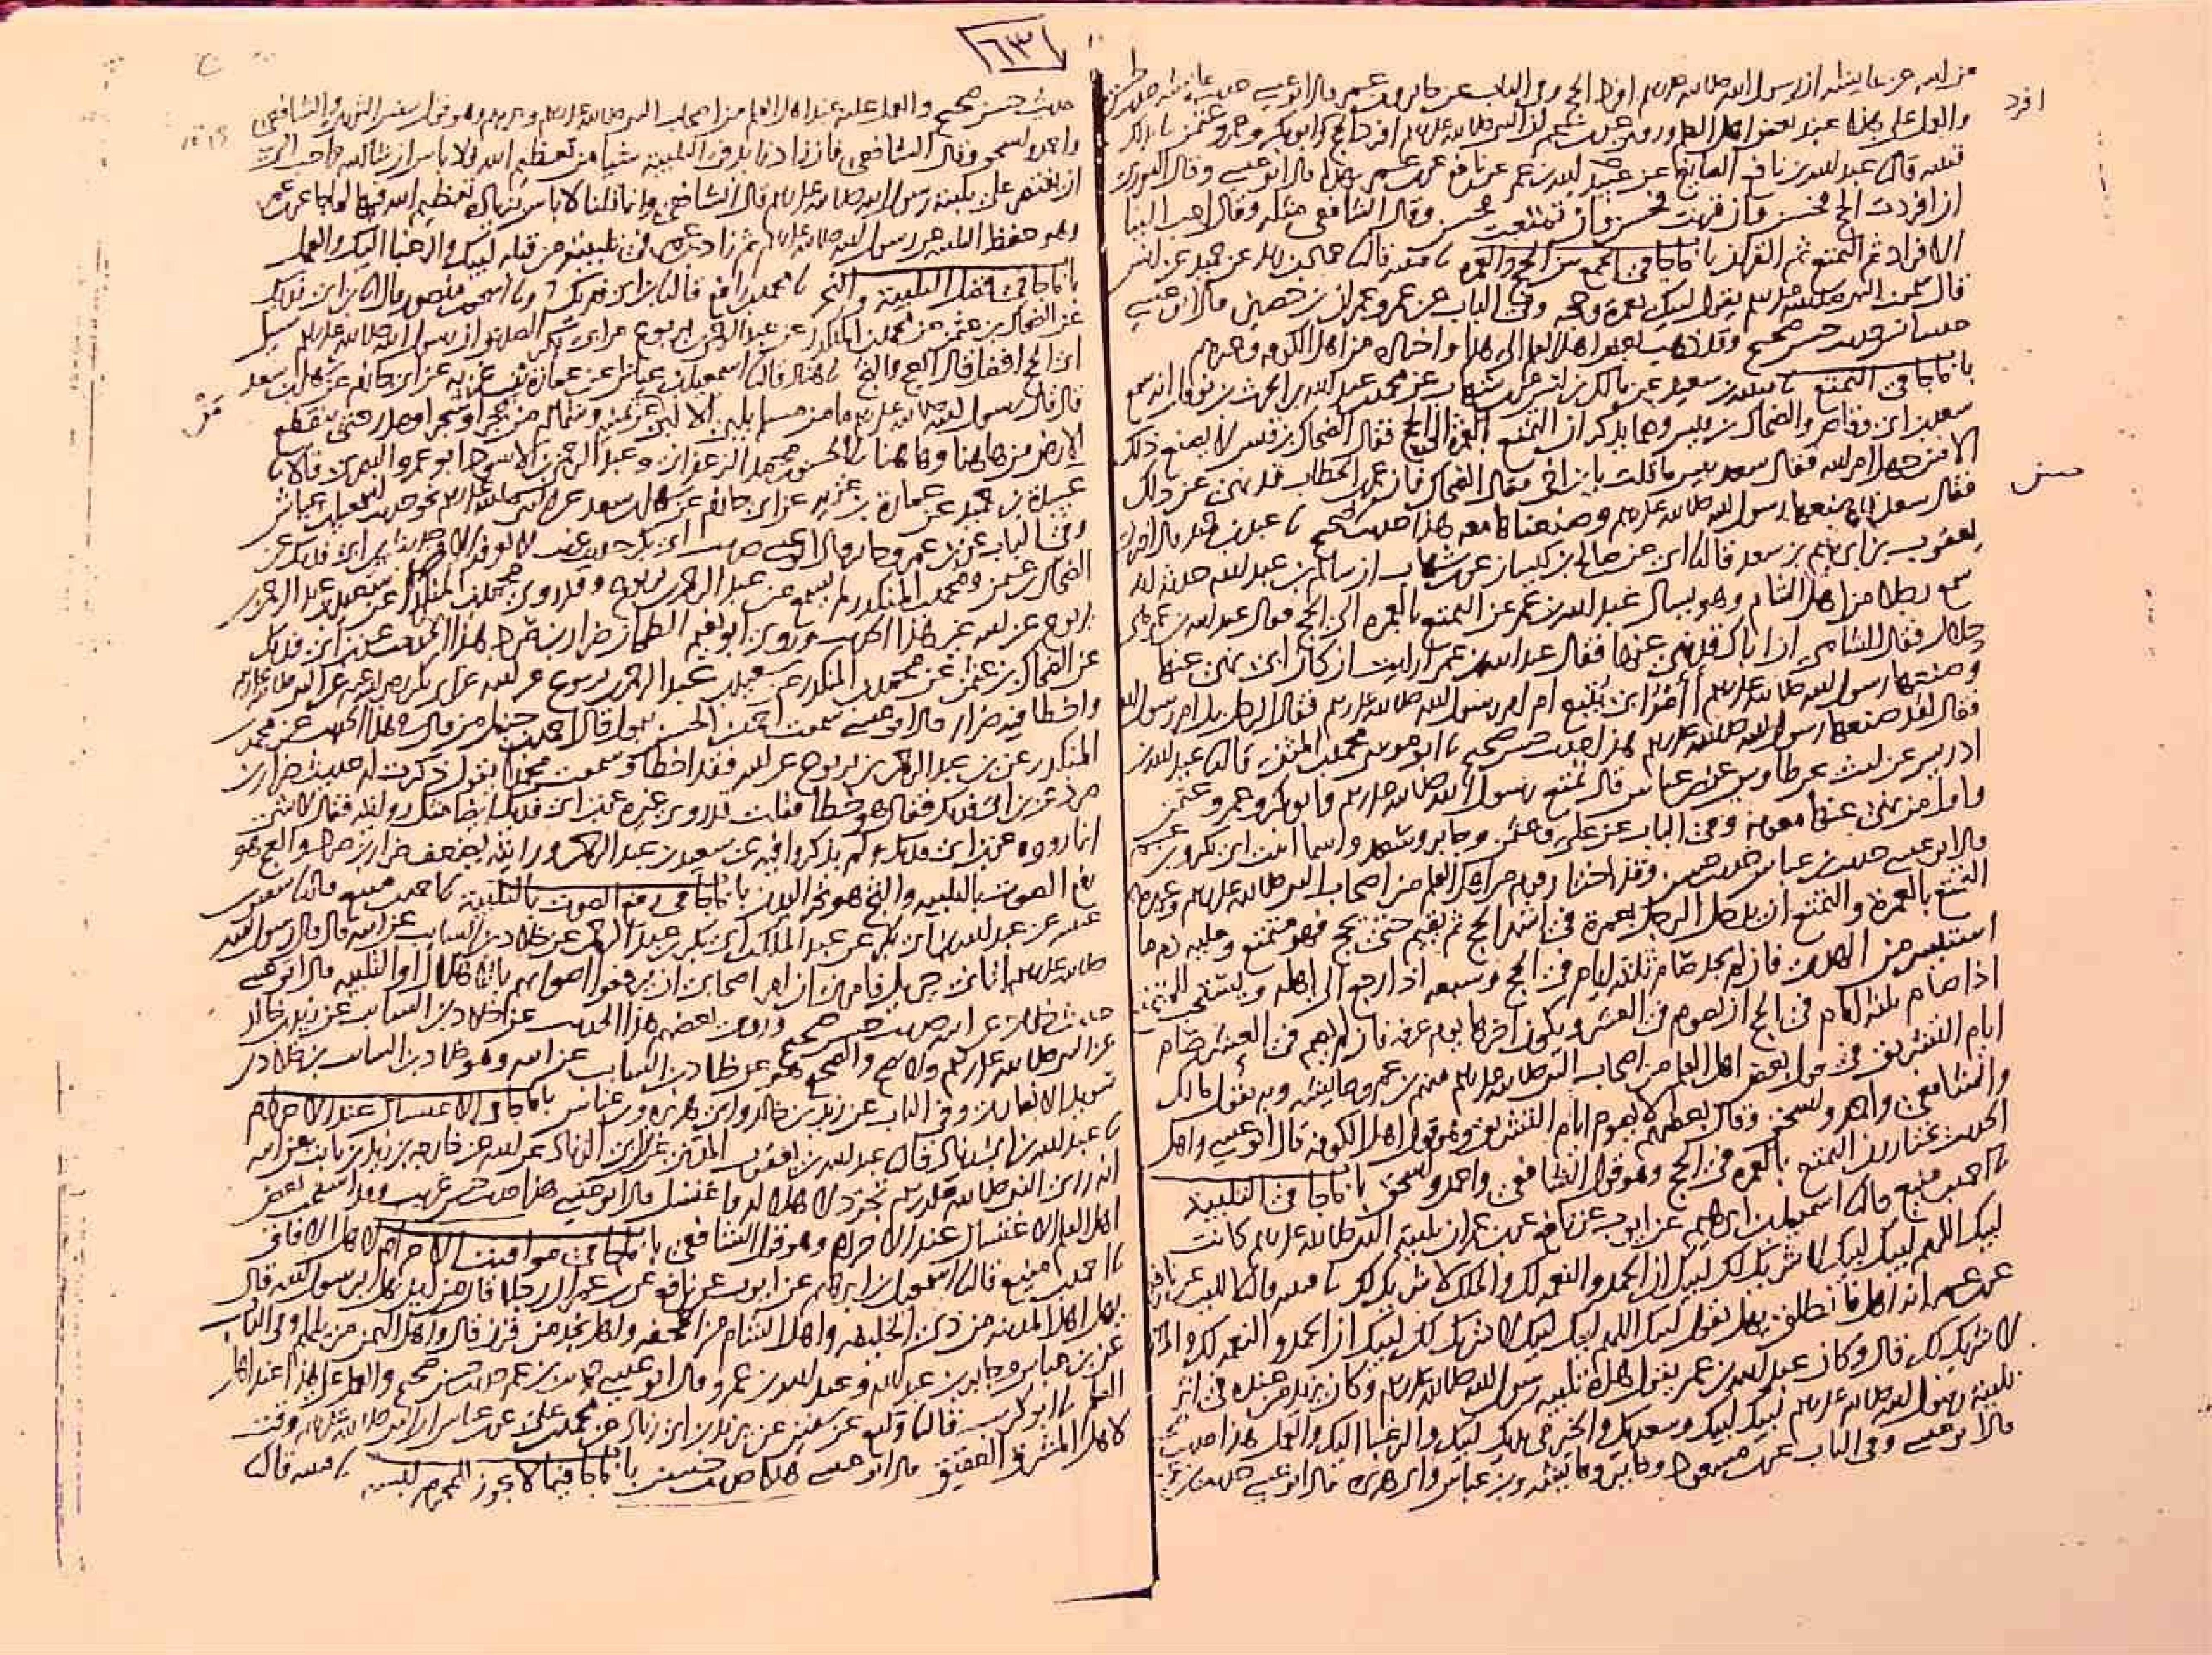 ٦٣
افرد
والعمل على هذا عند بعض اهل العلم وروى عن ابن عمر ان النبي صلى الله عليه وسلم افرد الحج وابو بكر وعمر وعثمن
قتيبه قال عبد الله بن نافع الصايغ عن عبيد الله بن عمر عن نافع عن ابن عمر بهذا قال ابو عيسى وقال الثوري
ان افردت الحج فحسن وان قرنت فحسن وان تمتعت فحسن وقال الشافعي مثله وقال احب الينا
الافراد ثم التمتع ثم القران باب ما جا في الجمع بين الحج والعمره قتيبه قال حماد بن زيد عن حميد عن انس
قال سمعت النبي صلى الله عليه وسلم يقول لبيك بعمره وحجه وفي الباب عن عمر وعمران بن حصين قال ابو عيسى
حديث انس حديث حسن صحيح وقد ذهب بعض اهل العلم الى هذا واختاره من اهل الكوفه وغيرهم
باب ما جا في التمتع قتيبه بن سعيد عن مالك بن انس عن ابن شهاب عن محمد بن عبد الله بن الحرث بن نوفل انه سمع
سعد بن ابي وقاص والضحاك بن قيس وهما يذكران التمتع بالعمره الى الحج فقال الضحاك بن قيس لا يصنع ذلك
الا من جهل امر الله فقال سعد بيس ما قلت يا ابن اخي فقال الضحاك فان عمر بن الخطاب قد نهى عن ذلك
فقال سعد قد صنعها رسول الله صلى الله عليه وسلم وصنعناها معه هذا حديث صحيح عبد بن حميد قال اخبرني
يعقوب بن ابرهيم بن سعد قال ابي عن صالح بن كيسان عن ابن شهاب ان سالم بن عبد الله حدثه انه
سمع رجلا من اهل الشام وهو يسال عبد الله بن عمر عن التمتع بالعمره الى الحج فقال عبد الله بن عمر هي
حلال فقال الشامي ان اباك قد نهى عنها فقال عبد الله بن عمر ارايت ان كان ابي نهى عنها
وصنعها رسول الله صلى الله عليه وسلم أأمر ابي يتبع ام امر رسول الله صلى الله عليه وسلم فقال الرجل بل امر رسول الله
فقال لقد صنعها رسول الله صلى الله عليه وسلم هذا حديث حسن صحيح ابو موسى محمد بن المثنى قال عبد الله بن
ادريس عن ليث عن طاوس عن ابن عباس قال تمتع رسول الله صلى الله عليه وسلم وابو بكر وعمر وعثمن
واول من نهى عنها معويه وفي الباب عن علي وعثمن وجابر وسعد واسما ابنت ابي بكر وابن عمر
قال ابو عيسى حديث ابن عباس حديث حسن وقد اختار قوم من اهل العلم من اصحاب النبي صلى الله عليه وسلم وغيرهم
التمتع بالعمرة والتمتع ان يدخل الرجل بعمرة في اشهر الحج ثم يقيم حتى يحج فهو متمتع وعليه دم ما
استيسر من الهدي فان لم يجد صام ثلثه ايام في الحج وسبعه اذا رجع الى اهله ويستحب للمتمتع
اذا صام ثلثه ايام في الحج ان يصوم في العشر ويكون اخرها يوم عرفه فان لم يصم في العشر صام
ايام التشريق في قول بعض اهل العلم من اصحاب النبي صلى الله عليه وسلم منهم ابن عمر وعايشه وبه يقول مالك
والشافعي واحمد واسحق وقال بعضهم لا يصوم ايام التشريق وهو قول اهل الكوفه قال ابو عيسى واهل
الحديث يختارون التمتع بالعمره في الحج وهو قول الشافعي واحمد واسحق باب ما جا في التلبية
احمد بن منيع قال اسمعيل بن ابرهيم عن ايوب عن نافع عن ابن عمر ان تلبية النبي صلى الله عليه وسلم كانت
لبيك اللهم لبيك لبيك لا شريك لك لبيك ان الحمد والنعمه لك والملك لا شريك لك قتيبه قال الليث عن نافع
عن ابن عمر انه اهل فانطلق يهل يقول لبيك اللهم لبيك لبيك لا شريك لك لبيك ان الحمد والنعمه لك والملك
لا شريك لك قال وكان عبد الله بن عمر يقول هذه تلبيه رسول الله صلى الله عليه وسلم وكان يزيد من عنده في اثر
تلبية رسول الله صلى الله عليه وسلم لبيك لبيك وسعديك والخير في يديك لبيك والرغبا اليك والعمل هذا حديث صحيح
قال ابو عيسى وفي الباب عن ابن مسعود وجابر وعايشه وابن عباس وابي هريره قال ابو عيسى حديث ابن عمر
حديث حسن صحيح والعمل عليه عند اهل العلم من اصحاب النبي صلى الله عليه وسلم وغيرهم وهو قول سفين الثوري والشافعي
واحمد واسحق وقال الشافعي فان زاد زايد في التلبيه شيا من تعظيم الله فلا باس ان شا الله واحب الي
ان يقتصر على تلبية رسول الله صلى الله عليه وسلم قال الشافعي وانما قلنا لا باس بزيادة تعظيم الله فيها لما جا عن ابن عمر
وهو حفظ التلبيه عن رسول الله صلى الله عليه وسلم ثم زاد ابن عمر في تلبيته من قبله لبيك والرغبا اليك والعمل
باب ما جا في فضل التلبية والنحر محمد بن رافع قال ابن ابي فديك ح واسحق بن منصور قال ابن ابي فديك
عن الضحاك بن عثمن عن محمد بن المنكدر عن عبد الرحمن بن يربوع عن ابي بكر الصديق ان رسول الله صلى الله عليه وسلم سيل
اي الحج افضل قال العج والثج هناد قال اسمعيل بن عياش عن عمارة بن غزيه عن ابي حازم عن سهل بن سعد
قال قال رسول الله صلى الله عليه وسلم ما من مسلم يلبي الا لبى عن يمينه وشماله من حجر او شجر او مدر حتى ينقطع
الارض من هاهنا وهاهنا الحسن بن محمد الزعفراني وعبد الرحمن بن الاسود ابو عمرو البصري قالا
عبيدة بن حميد عن عمارة بن غزيه عن ابي حازم عن سهل بن سعد عن النبي صلى الله عليه وسلم نحو حديث اسمعيل بن عياش
الضحاك بن عثمن ومحمد بن المنكدر لم يسمع من عبد الرحمن بن يربوع وقد روى محمد بن المنكدر عن سعيد بن عبد الرحمن بن
يربوع عن ابيه غير هذا الحديث وروى ابو نعيم الطحان ضرار بن صرد هذا الحديث عن ابن ابي فديك
عن الضحاك بن عثمن عن محمد بن المنكدر عن سعيد بن عبد الرحمن بن يربوع عن ابيه عن ابي بكر عن النبي صلى الله عليه وسلم
واخطا فيه ضرار قال ابو عيسى سمعت احمد بن الحسن يقول قال احمد بن حنبل من قال في هذا الحديث عن محمد بن
المنكدر عن ابن عبد الرحمن بن يربوع عن ابيه فقد اخطا وسمعت محمدا يقول ذكرت له حديث ضرار بن
صرد عن ابن ابي فديك فقال هو خطا فقلت قد روى غيره عن ابن ابي فديك ايضا مثل روايته فقال لا شي
انما رووه عن ابن ابي فديك ولم يذكروا فيه عن سعيد بن عبد الرحمن ورايته يضعف ضرار بن صرد والعج هو
رفع الصوت بالتلبيه والثج هو نحر البدن باب ما جا في رفع الصوت بالتلبية احمد بن منيع قال سفين بن
عيينه عن عبد الله بن ابي بكر عن عبد الملك بن ابي بكر بن عبد الرحمن عن خلاد بن السايب عن ابيه قال قال رسول الله
صلى الله عليه وسلم اتاني جبريل فامرني ان امر اصحابي ان يرفعوا اصواتهم بالاهلال او التلبيه قال ابو عيسى
حديث خلاد عن ابيه حديث حسن صحيح وروى بعضهم هذا الحديث عن خلاد بن السايب عن زيد بن خالد
عن النبي صلى الله عليه وسلم ولا يصح والصحيح هو عن خلاد بن السايب عن ابيه وهو خلاد بن السايب بن خلاد بن
سويد الانصاري وفي الباب عن زيد بن خالد وابي هريره وابن عباس باب ما جا في الاغتسال عند الاحرام
عبد الله بن ابي زياد قال عبد الله بن يعقوب المدني عن ابن ابي الزناد عن ابيه عن خارجه بن زيد بن ثابت عن ابيه
انه راى النبي صلى الله عليه وسلم تجرد لاهلاله واغتسل قال ابو عيسى هذا حديث حسن غريب وقد استحب بعض
اهل العلم الاغتسال عند الاحرام وهو قول الشافعي باب ما جا في مواقيت الاحرام لاهل الافاق
احمد بن منيع قال اسمعيل بن ابرهيم عن ايوب عن نافع عن ابن عمر ان رجلا قال من اين نهل يا رسول الله قال
يهل اهل المدينه من ذي الحليفه واهل الشام من الجحفه واهل نجد من قرن قال واهل اليمن من يلملم وفي الباب
عن ابن عباس وجابر بن عبد الله وعبد الله بن عمرو قال ابو عيسى حديث ابن عمر حديث حسن صحيح والعمل على هذا عند اهل
العلم ابو كريب قال وكيع عن سفين عن يزيد بن ابي زياد عن محمد بن علي عن ابن عباس ان النبي صلى الله عليه وسلم وقت
لاهل المشرق العقيق قال ابو عيسى هذا حديث حسن باب ما جا فيما لا يجوز للمحرم لبسه قتيبه قال